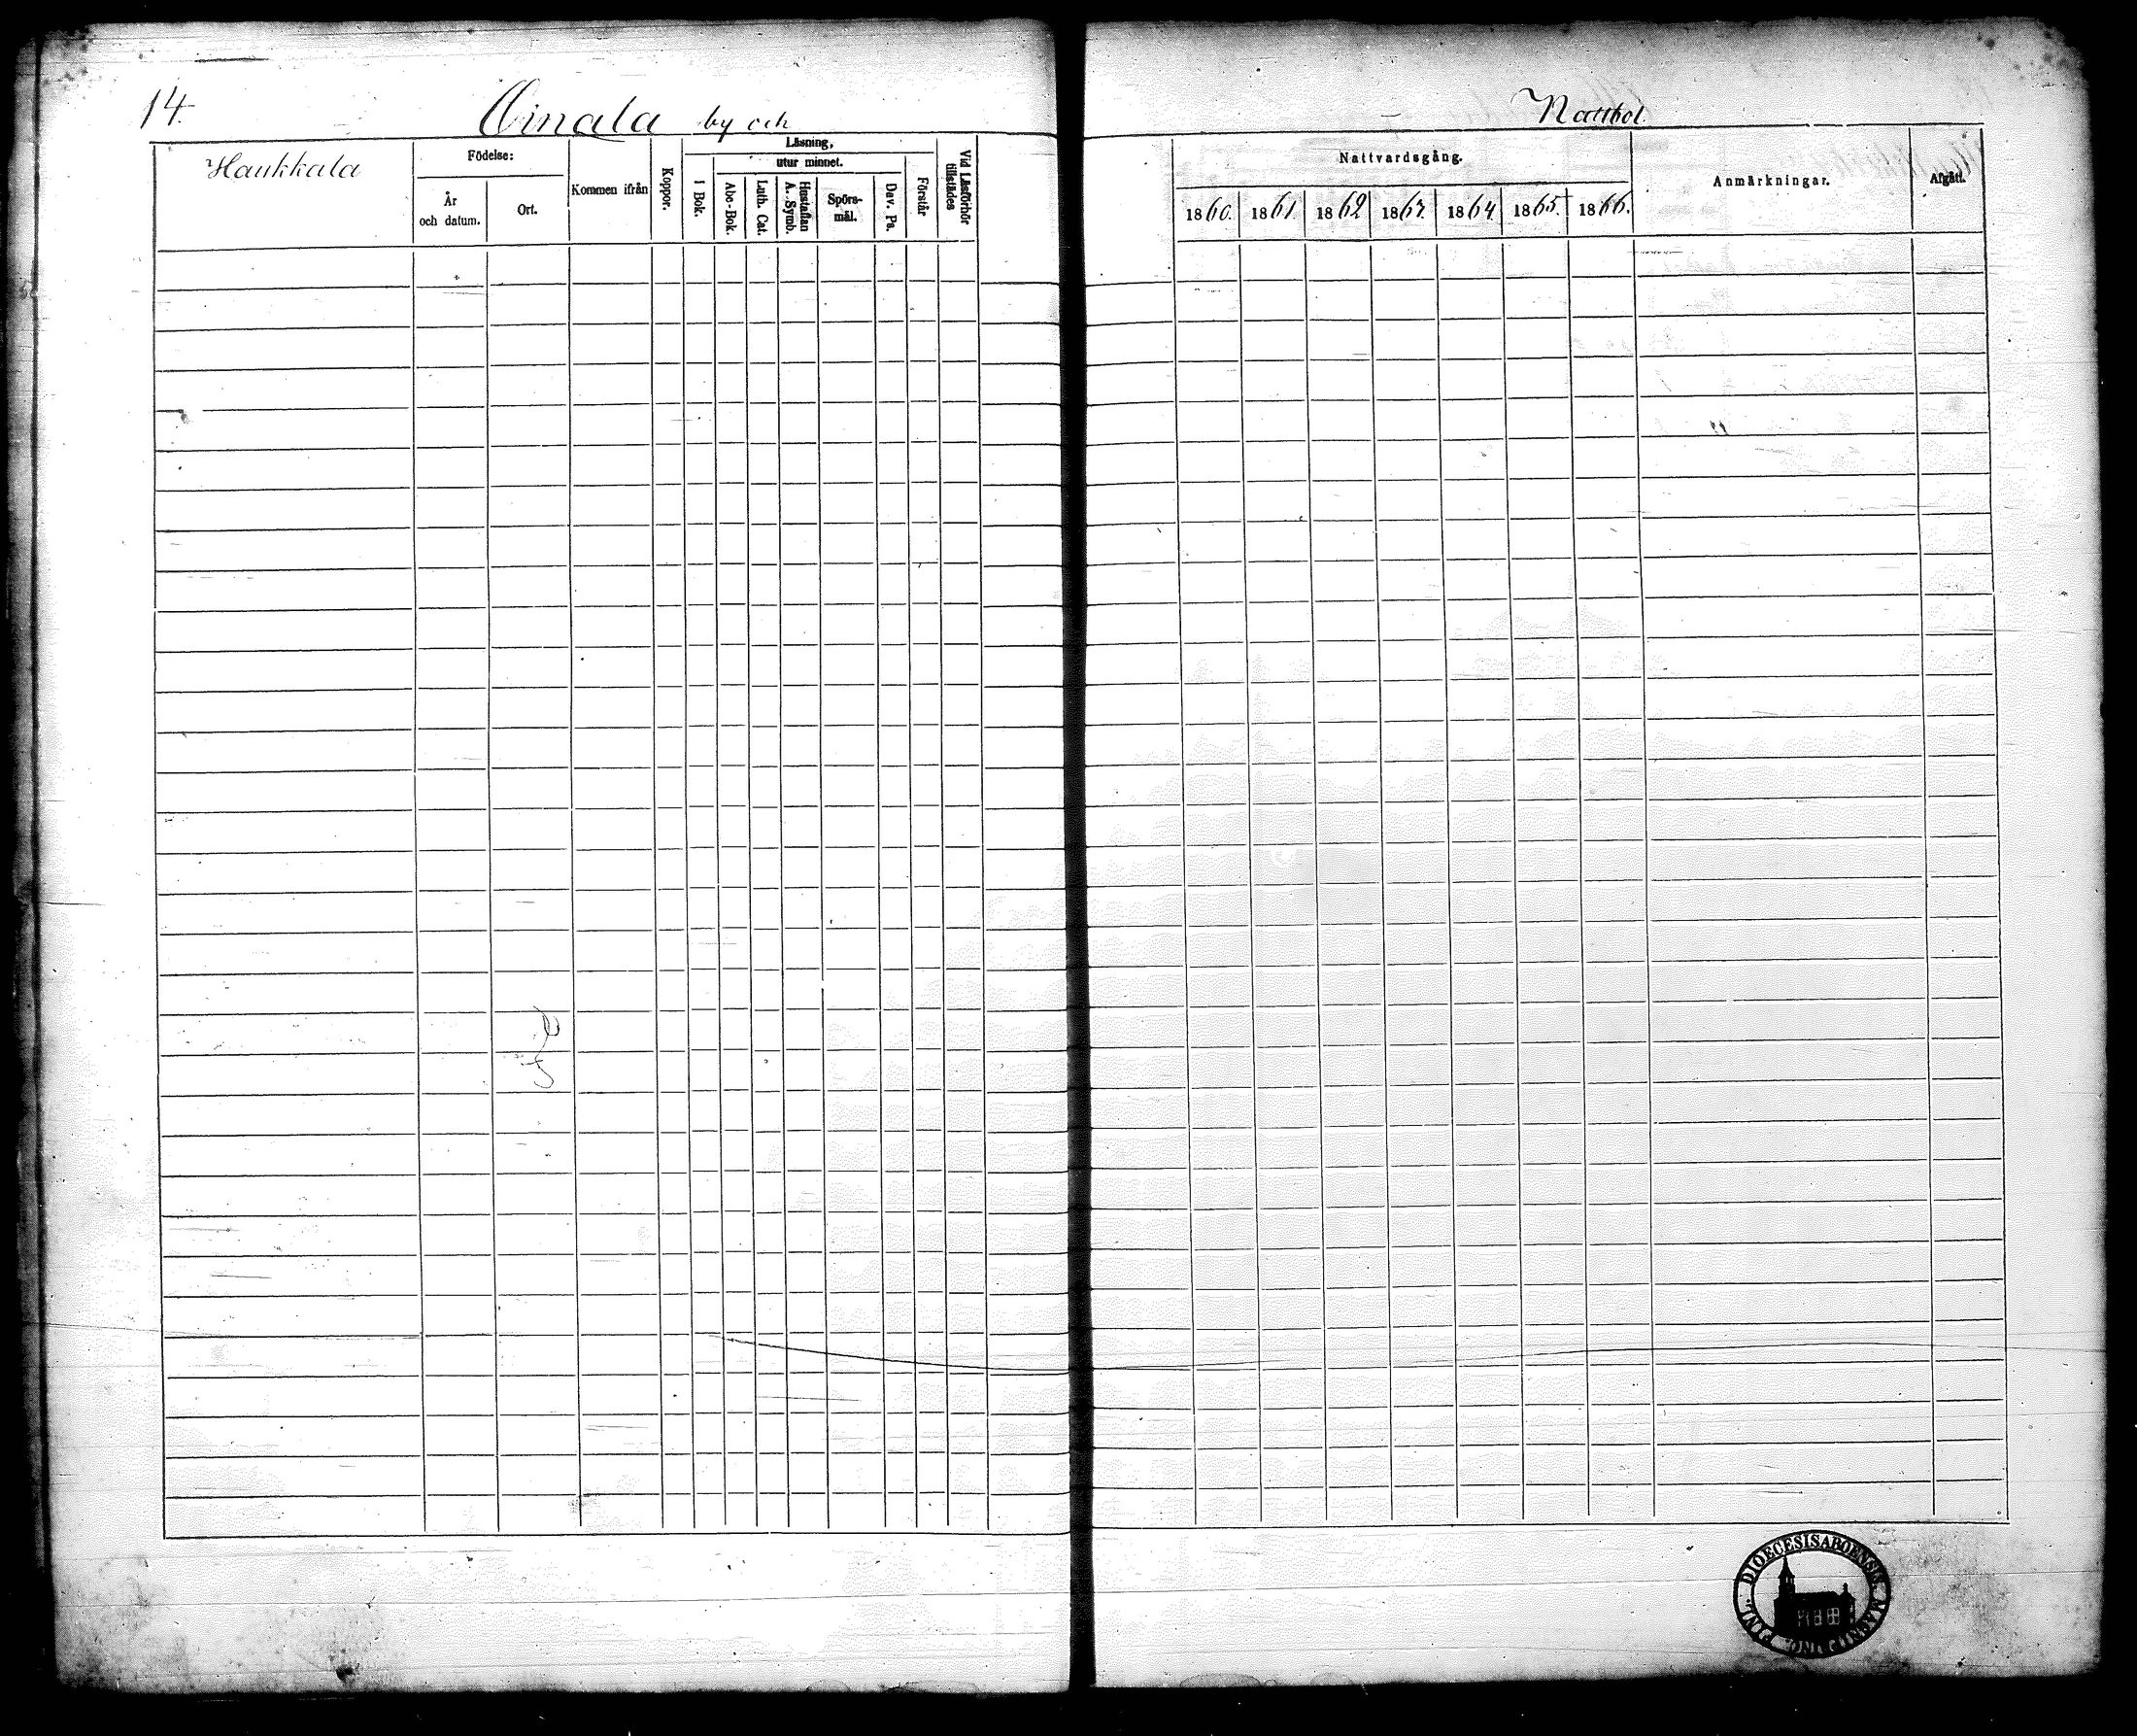 14.
Oinala by och
Nattbol.
Haukkala
Födelse:
År
och datum.
Ort.
Kommen ifrån
Koppor.
Läsning,
utur minnet.
I Bok.
Abc-Bok.
Luth. Cat.
Hustaflan
A. Symb.
Spörs-
mål.
Dav. Ps.
Förstår
Vid Läsförhör
tillstädes
Nattvardsgång.
1860. 1861. 1862 1863. 1864 1865. 1866.
Anmärkningar.
Afgått.
DIOECESIS ABOENSIS